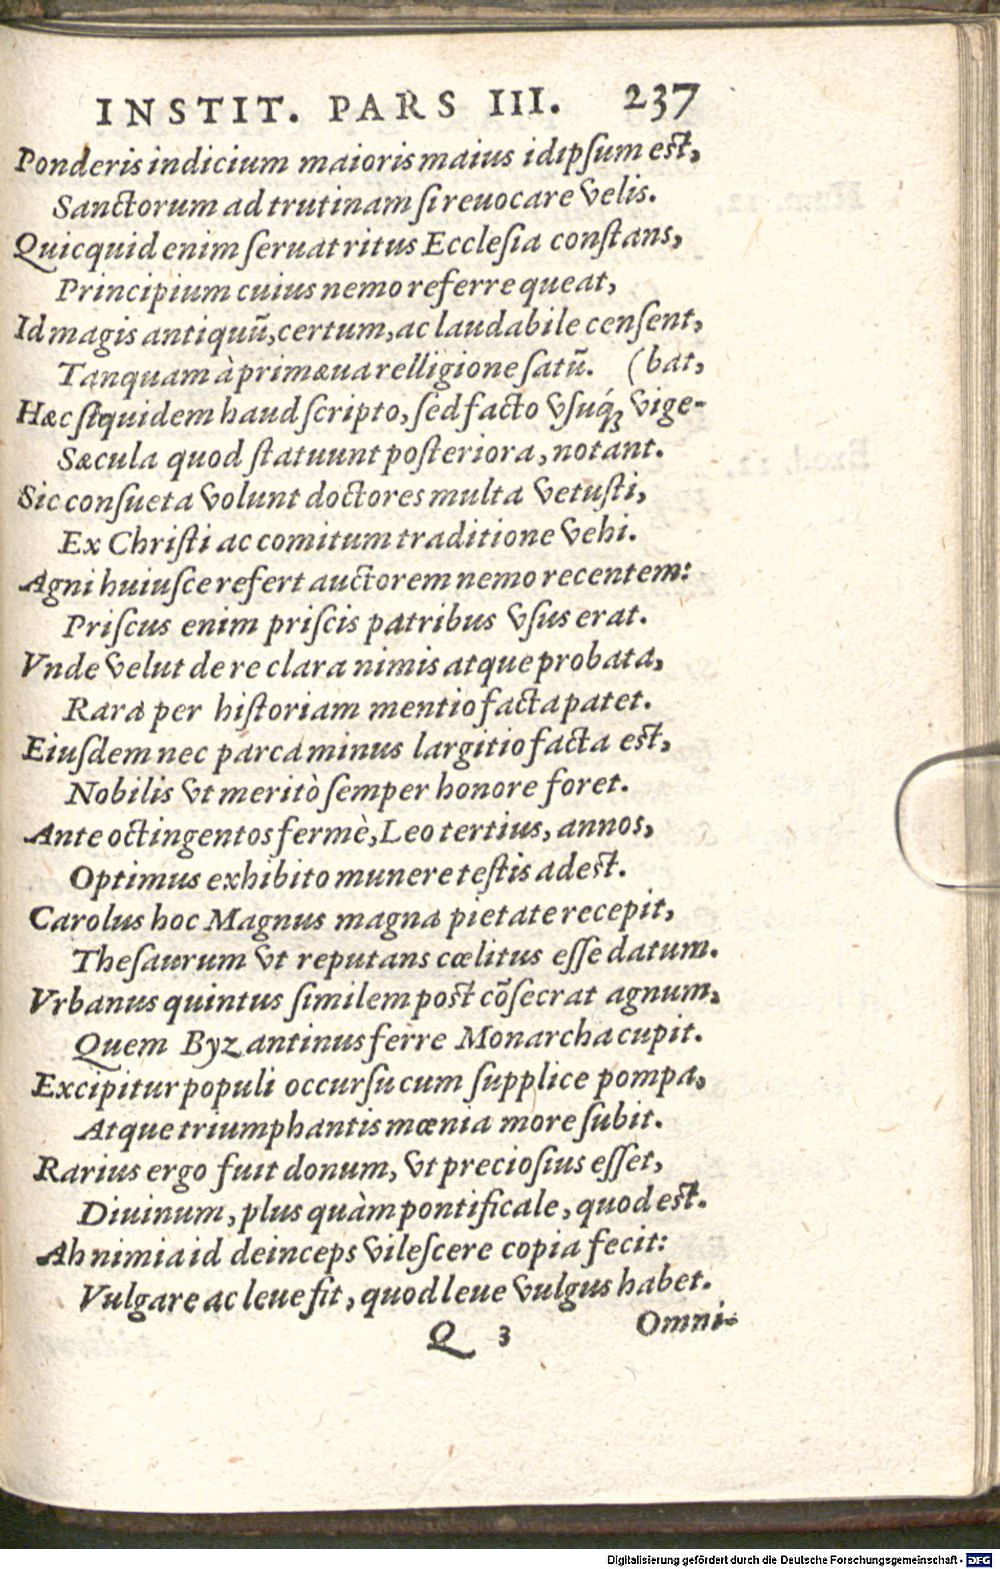 INSTIT. PARS III. 237
Ponderis indicium maioris maius idipsum est,
Sanctorum ad trutinam si reuocare velis.
Quicquid enim seruat ritus Ecclesia constans,
Principium cuius nemo referre queat,
Id magis antiquũ, certum, ac laudabile censent,
Tanquam à primæua relligione satũ. (bat,
Hæc siquidem haud scripto, sed facto vsuq́ꝫ vige-
Sæcula quod statuunt posteriora, notant.
Sic consueta volunt doctores multa vetusti,
Ex Christi ac comitum traditione vehi.
Agni huiusce refert auctorem nemo recentem:
Priscus enim priscis patribus vsus erat.
Vnde velut de re clara nimis atque probata,
Rara per historiam mentio facta patet.
Eiusdem nec parca minus largitio facta est,
Nobilis vt meritò semper honore foret.
Ante octingentos fermè, Leo tertius, annos,
Optimus exhibito munere testis adest.
Carolus hoc Magnus magna pietate recepit,
Thesaurum vt reputans cœlitus esse datum.
Vrbanus quintus similem post cõsecrat agnum,
Quem Byzantinus ferre Monarcha cupit.
Excipitur populi occursu cum supplice pompa,
Atque triumphantis mœnia more subit.
Rarius ergo fuit donum, vt preciosius esset,
Diuinum, plus quàm pontificale, quod est.
Ah nimia id deinceps vilescere copia fecit:
Vulgare ac leue fit, quod leue vulgus habet.
Q 3 Omni-
Digitalisierung gefördert durch die Deutsche Forschungsgemeinschaft - DFG